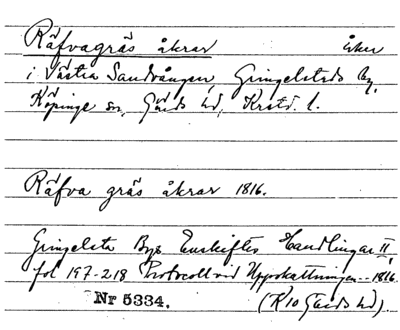 Räfvagräs åkrar åker
i Västra Sandvången, Gringelsteds by,
Köpinge sn, Gärds hd, Krstd. l.
Räfva gräs åkrar 1816.
Gringelsta Bys Enskiftes Handlingar II,
fol 197-218 Protocoll vid Uppskattningen -- 1816.
Nr 5334. (R 10 Gärds hd).